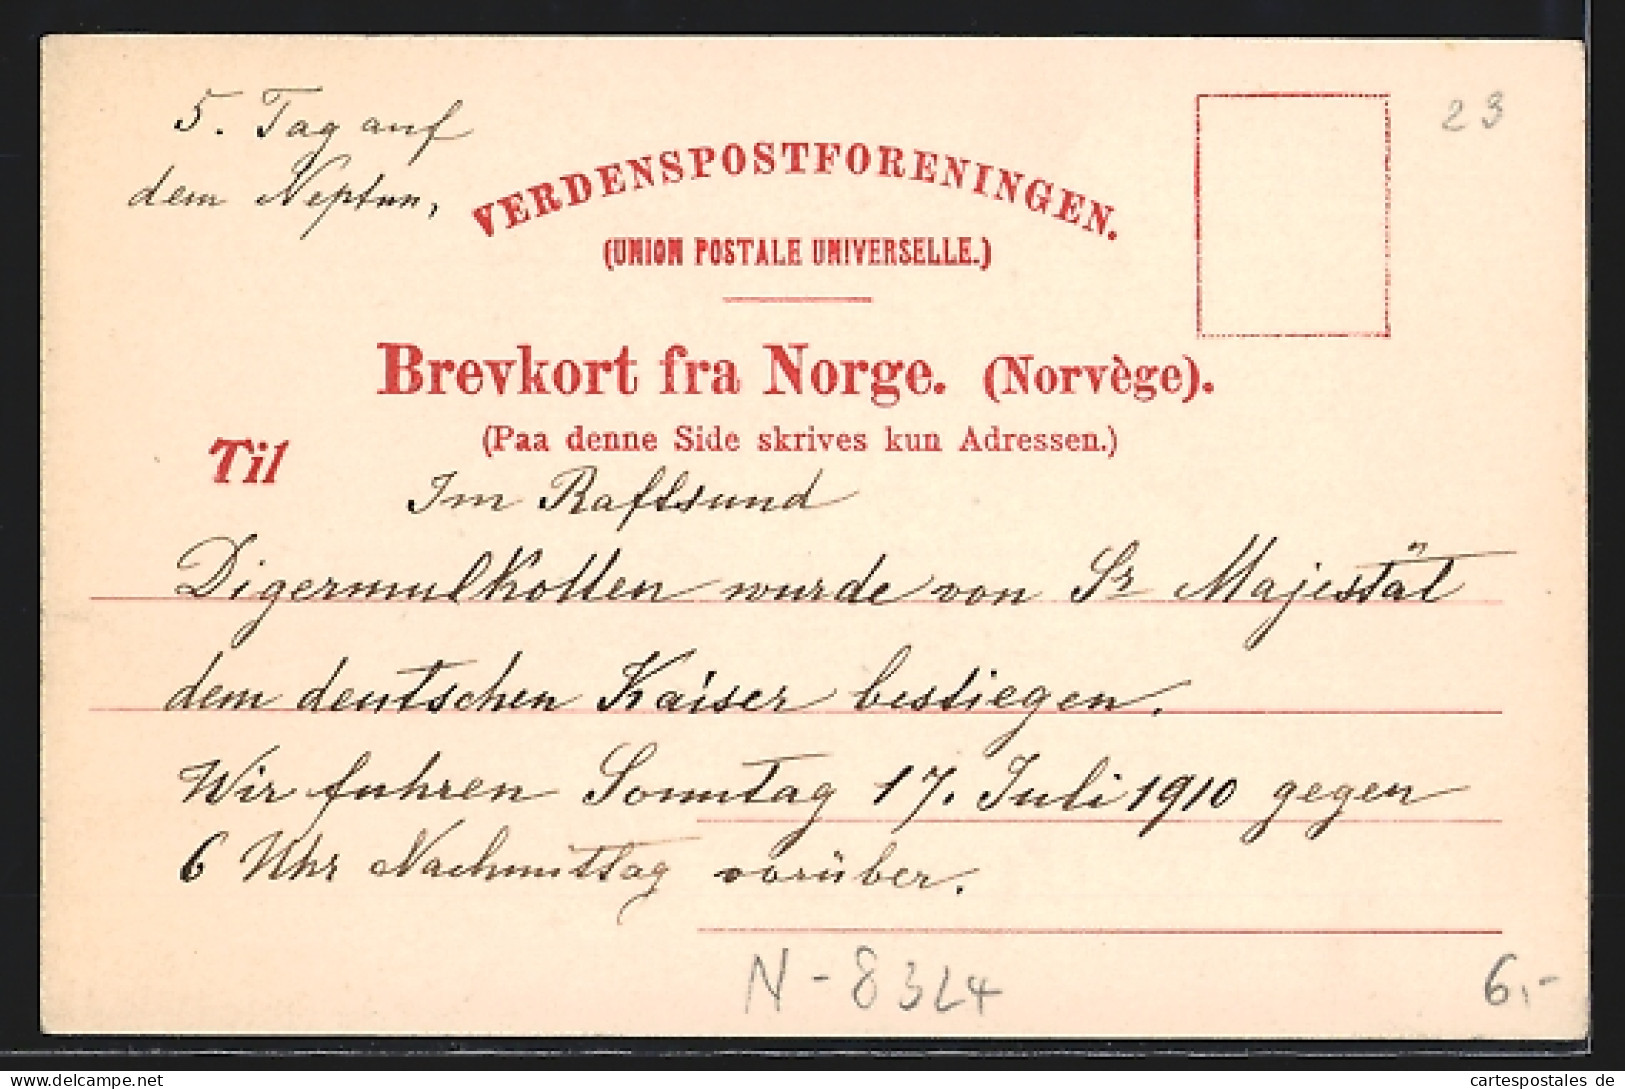 5. Tag auf
dem Neptun,
23
VERDENSPOSTFORENINGEN.
(UNION POSTALE UNIVERSELLE.)
Brevkort fra Norge. (Norvège).
(Paa denne Side skrives kun Adressen.)
Til
Im Raftsund
Digermulkollen wurde von Sr Majestät
dem deutschen Kaiser bestiegen.
Wir fuhren Sonntag 17. Juli 1910 gegen
6 Uhr Nachmittag vorüber.
N-8324
6,-
cartespostales de
www.delcampe.net